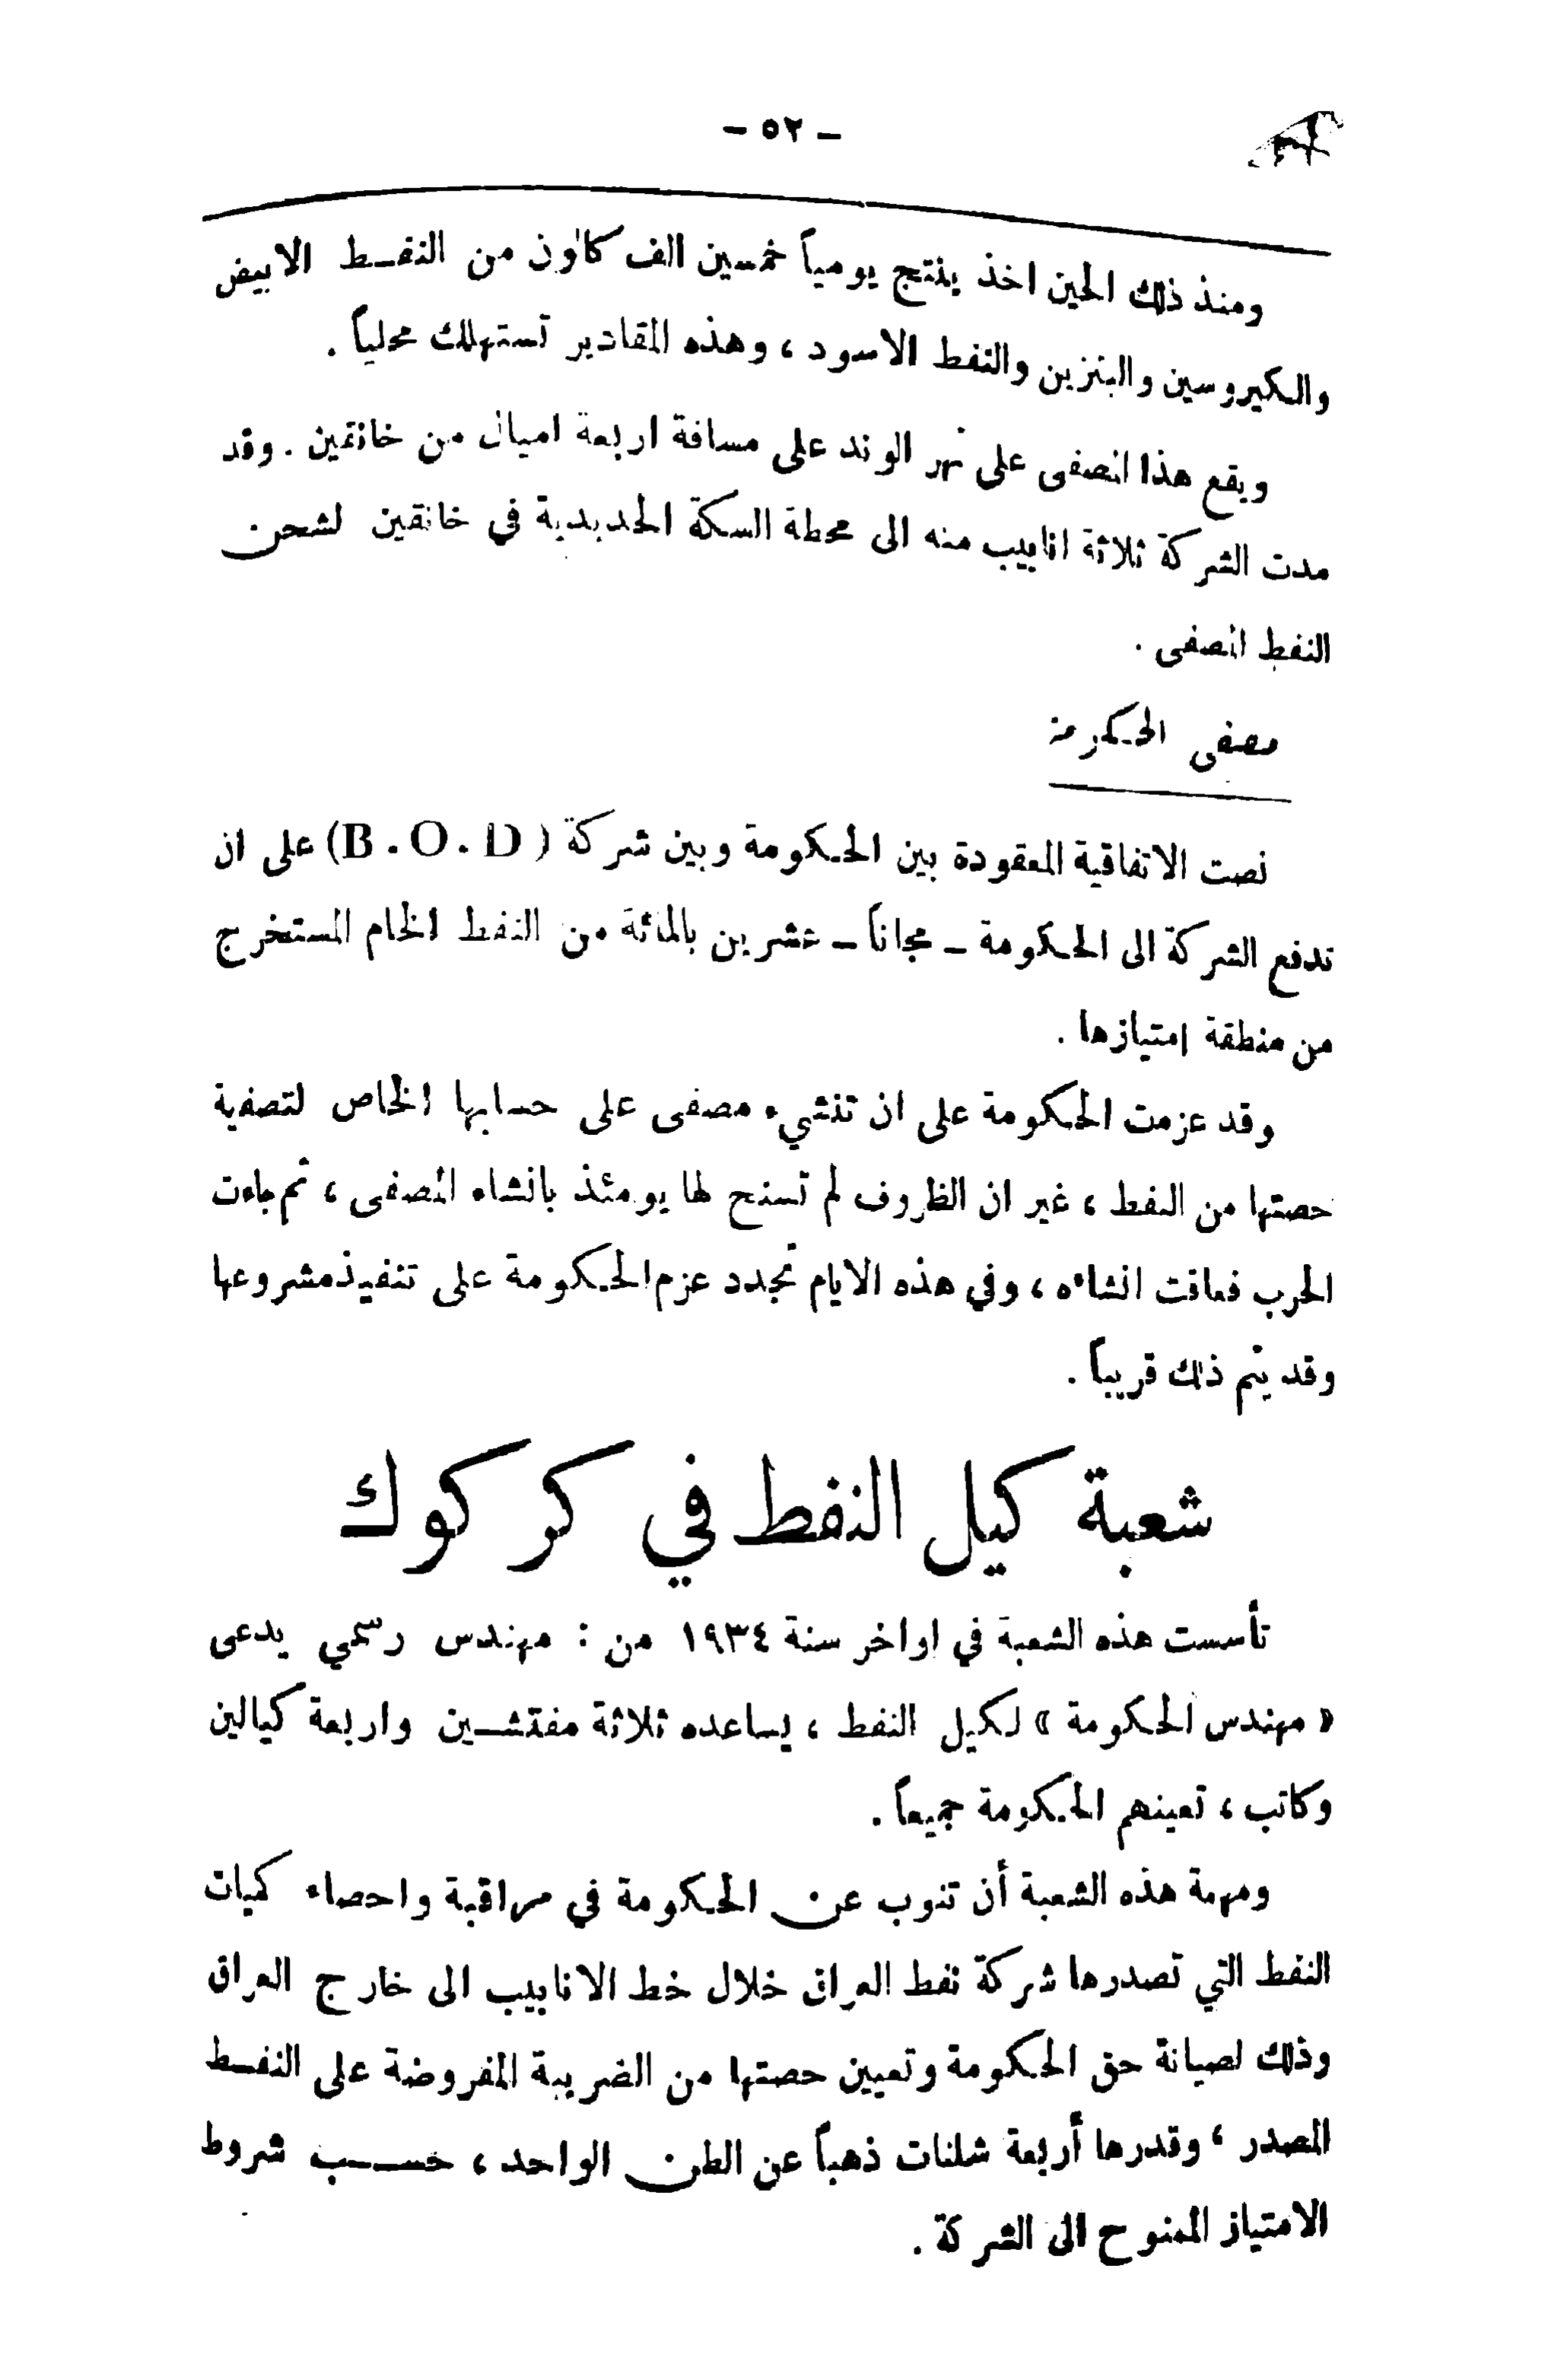 - ٥٢ -
ومنذ ذلك الحين اخذ ينتج يومياً خمسين الف كالون من النفط الابيض
والكيروسين والبنزين والنفط الاسود ، وهذه المقادير تستهلك محلياً .
ويقع هذا المصفى على نهر الوند على مسافة اربعة اميال من خانقين . وقد
مدت الشركة ثلاثة انابيب منه الى محطة السكة الحديدية في خانقين لشحن
النفط المصفى .
مصفى الحكومة
نصت الاتفاقية المعقودة بين الحكومة وبين شركة (B.O.D) على ان
تدفع الشركة الى الحكومة - مجاناً - عشرين بالمائة من النفط الخام المستخرج
من منطقة امتيازها .
وقد عزمت الحكومة على ان تنشيء مصفى على حسابها الخاص لتصفية
حصتها من النفط ، غير ان الظروف لم تسنح لها يومئذ بانشاء المصفى ، ثم جاءت
الحرب فعاقت انشاءه ، وفي هذه الايام تجدد عزم الحكومة على تنفيذ مشروعها
وقد يتم ذلك قريباً .
شعبة كيل النفط في كركوك
تأسست هذه الشعبة في اواخر سنة ١٩٣٤ من : مهندس رسمي يدعى
« مهندس الحكومة » لكيل النفط ، يساعده ثلاثة مفتشين واربعة كيالين
وكاتب ، تعينهم الحكومة جميعاً .
ومهمة هذه الشعبة أن تنوب عن الحكومة في مراقبة واحصاء كميات
النفط التي تصدرها شركة نفط العراق خلال خط الانابيب الى خارج العراق
وذلك لصيانة حق الحكومة وتعيين حصتها من الضريبة المفروضة على النفط
المصدر ، وقدرها أربعة شلنات ذهباً عن الطن الواحد ، حسب شروط
الامتياز الممنوح الى الشركة .